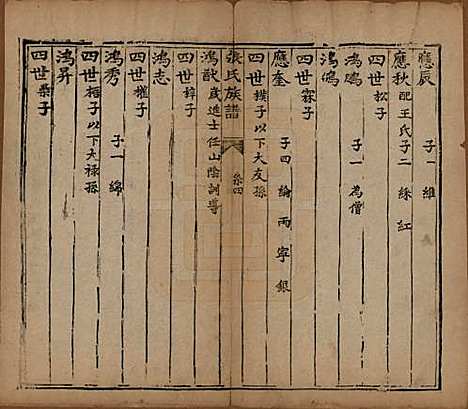 應辰　子一　維
應秋　配王氏子二　絲　紅
四世　松子
鴻鵬　子一　為僧
鴻鳴
四世　霖子
應奎　子四　論　丙　寧　銀
四世　樸子以下大友孫
張氏族譜　卷四
鴻猷　歲進士任山陰訓導
四世　梓子
鴻志
四世　權子
鴻秀　子一　綿
四世　梅子以下大祿孫
鴻昇
四世　榮子